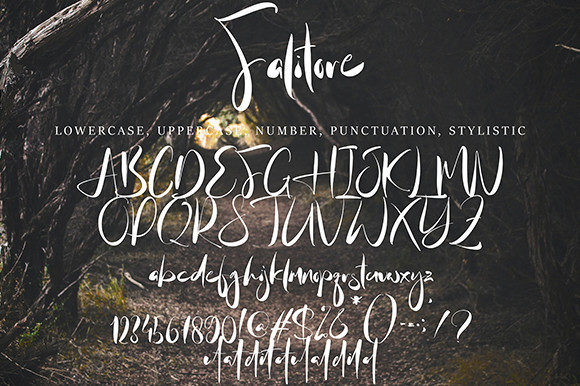 Falitore
LOWERCASE, UPPERCASE, NUMBER, PUNCTUATION, STYLISTIC
ABCDEFGHIJKLMN
OPQRSTUVWXYZ
abcdefghijklmnopqrstuvwxyz